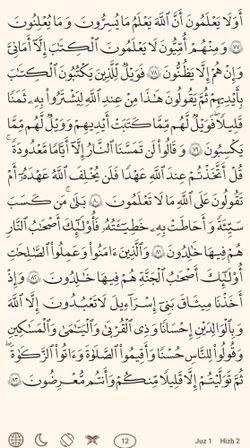 أَوَلَا يَعْلَمُونَ أَنَّ ٱللَّهَ يَعْلَمُ مَا يُسِرُّونَ وَمَا يُعْلِنُونَ
٧٧ وَمِنْهُمْ أُمِّيُّونَ لَا يَعْلَمُونَ ٱلْكِتَٰبَ إِلَّآ أَمَانِىَّ
وَإِنْ هُمْ إِلَّا يَظُنُّونَ ٧٨ فَوَيْلٌ لِّلَّذِينَ يَكْتُبُونَ ٱلْكِتَٰبَ
بِأَيْدِيهِمْ ثُمَّ يَقُولُونَ هَٰذَا مِنْ عِندِ ٱللَّهِ لِيَشْتَرُوا۟ بِهِۦ ثَمَنًا
قَلِيلًا ۖ فَوَيْلٌ لَّهُم مِّمَّا كَتَبَتْ أَيْدِيهِمْ وَوَيْلٌ لَّهُم مِّمَّا
يَكْسِبُونَ ٧٩ وَقَالُوا۟ لَن تَمَسَّنَا ٱلنَّارُ إِلَّآ أَيَّامًا مَّعْدُودَةً ۚ
قُلْ أَتَّخَذْتُمْ عِندَ ٱللَّهِ عَهْدًا فَلَن يُخْلِفَ ٱللَّهُ عَهْدَهُۥٓ ۖ أَمْ
تَقُولُونَ عَلَى ٱللَّهِ مَا لَا تَعْلَمُونَ ٨٠ بَلَىٰ مَن كَسَبَ
سَيِّئَةً وَأَحَٰطَتْ بِهِۦ خَطِيٓـَٔتُهُۥ فَأُو۟لَٰٓئِكَ أَصْحَٰبُ ٱلنَّارِ ۖ
هُمْ فِيهَا خَٰلِدُونَ ٨١ وَٱلَّذِينَ ءَامَنُوا۟ وَعَمِلُوا۟ ٱلصَّٰلِحَٰتِ
أُو۟لَٰٓئِكَ أَصْحَٰبُ ٱلْجَنَّةِ ۖ هُمْ فِيهَا خَٰلِدُونَ ٨٢ وَإِذْ
أَخَذْنَا مِيثَٰقَ بَنِىٓ إِسْرَٰٓءِيلَ لَا تَعْبُدُونَ إِلَّا ٱللَّهَ
وَبِٱلْوَٰلِدَيْنِ إِحْسَانًا وَذِى ٱلْقُرْبَىٰ وَٱلْيَتَٰمَىٰ وَٱلْمَسَٰكِينِ
وَقُولُوا۟ لِلنَّاسِ حُسْنًا وَأَقِيمُوا۟ ٱلصَّلَوٰةَ وَءَاتُوا۟ ٱلزَّكَوٰةَ
ثُمَّ تَوَلَّيْتُمْ إِلَّا قَلِيلًا مِّنكُمْ وَأَنتُم مُّعْرِضُونَ ٨٣
12 Juz 1 Hizb 2